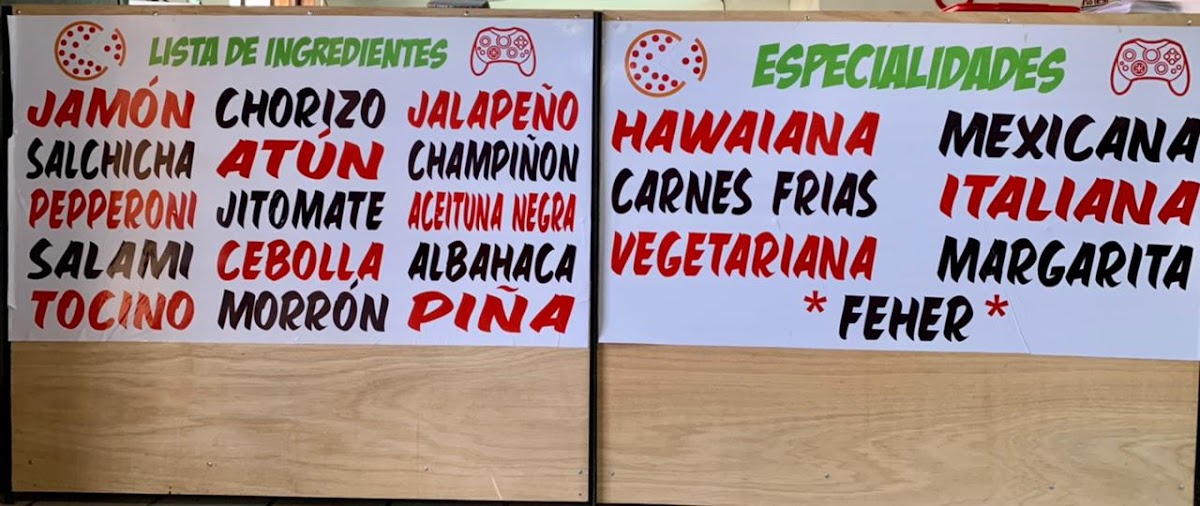 LISTA DE INGREDIENTES
JAMÓN CHORIZO JALAPEÑO
SALCHICHA ATÚN CHAMPIÑON
PEPPERONI JITOMATE ACEITUNA NEGRA
SALAMI CEBOLLA ALBAHACA
TOCINO MORRÓN PIÑA
ESPECIALIDADES
HAWAIANA MEXICANA
CARNES FRIAS ITALIANA
VEGETARIANA MARGARITA
* FEHER *